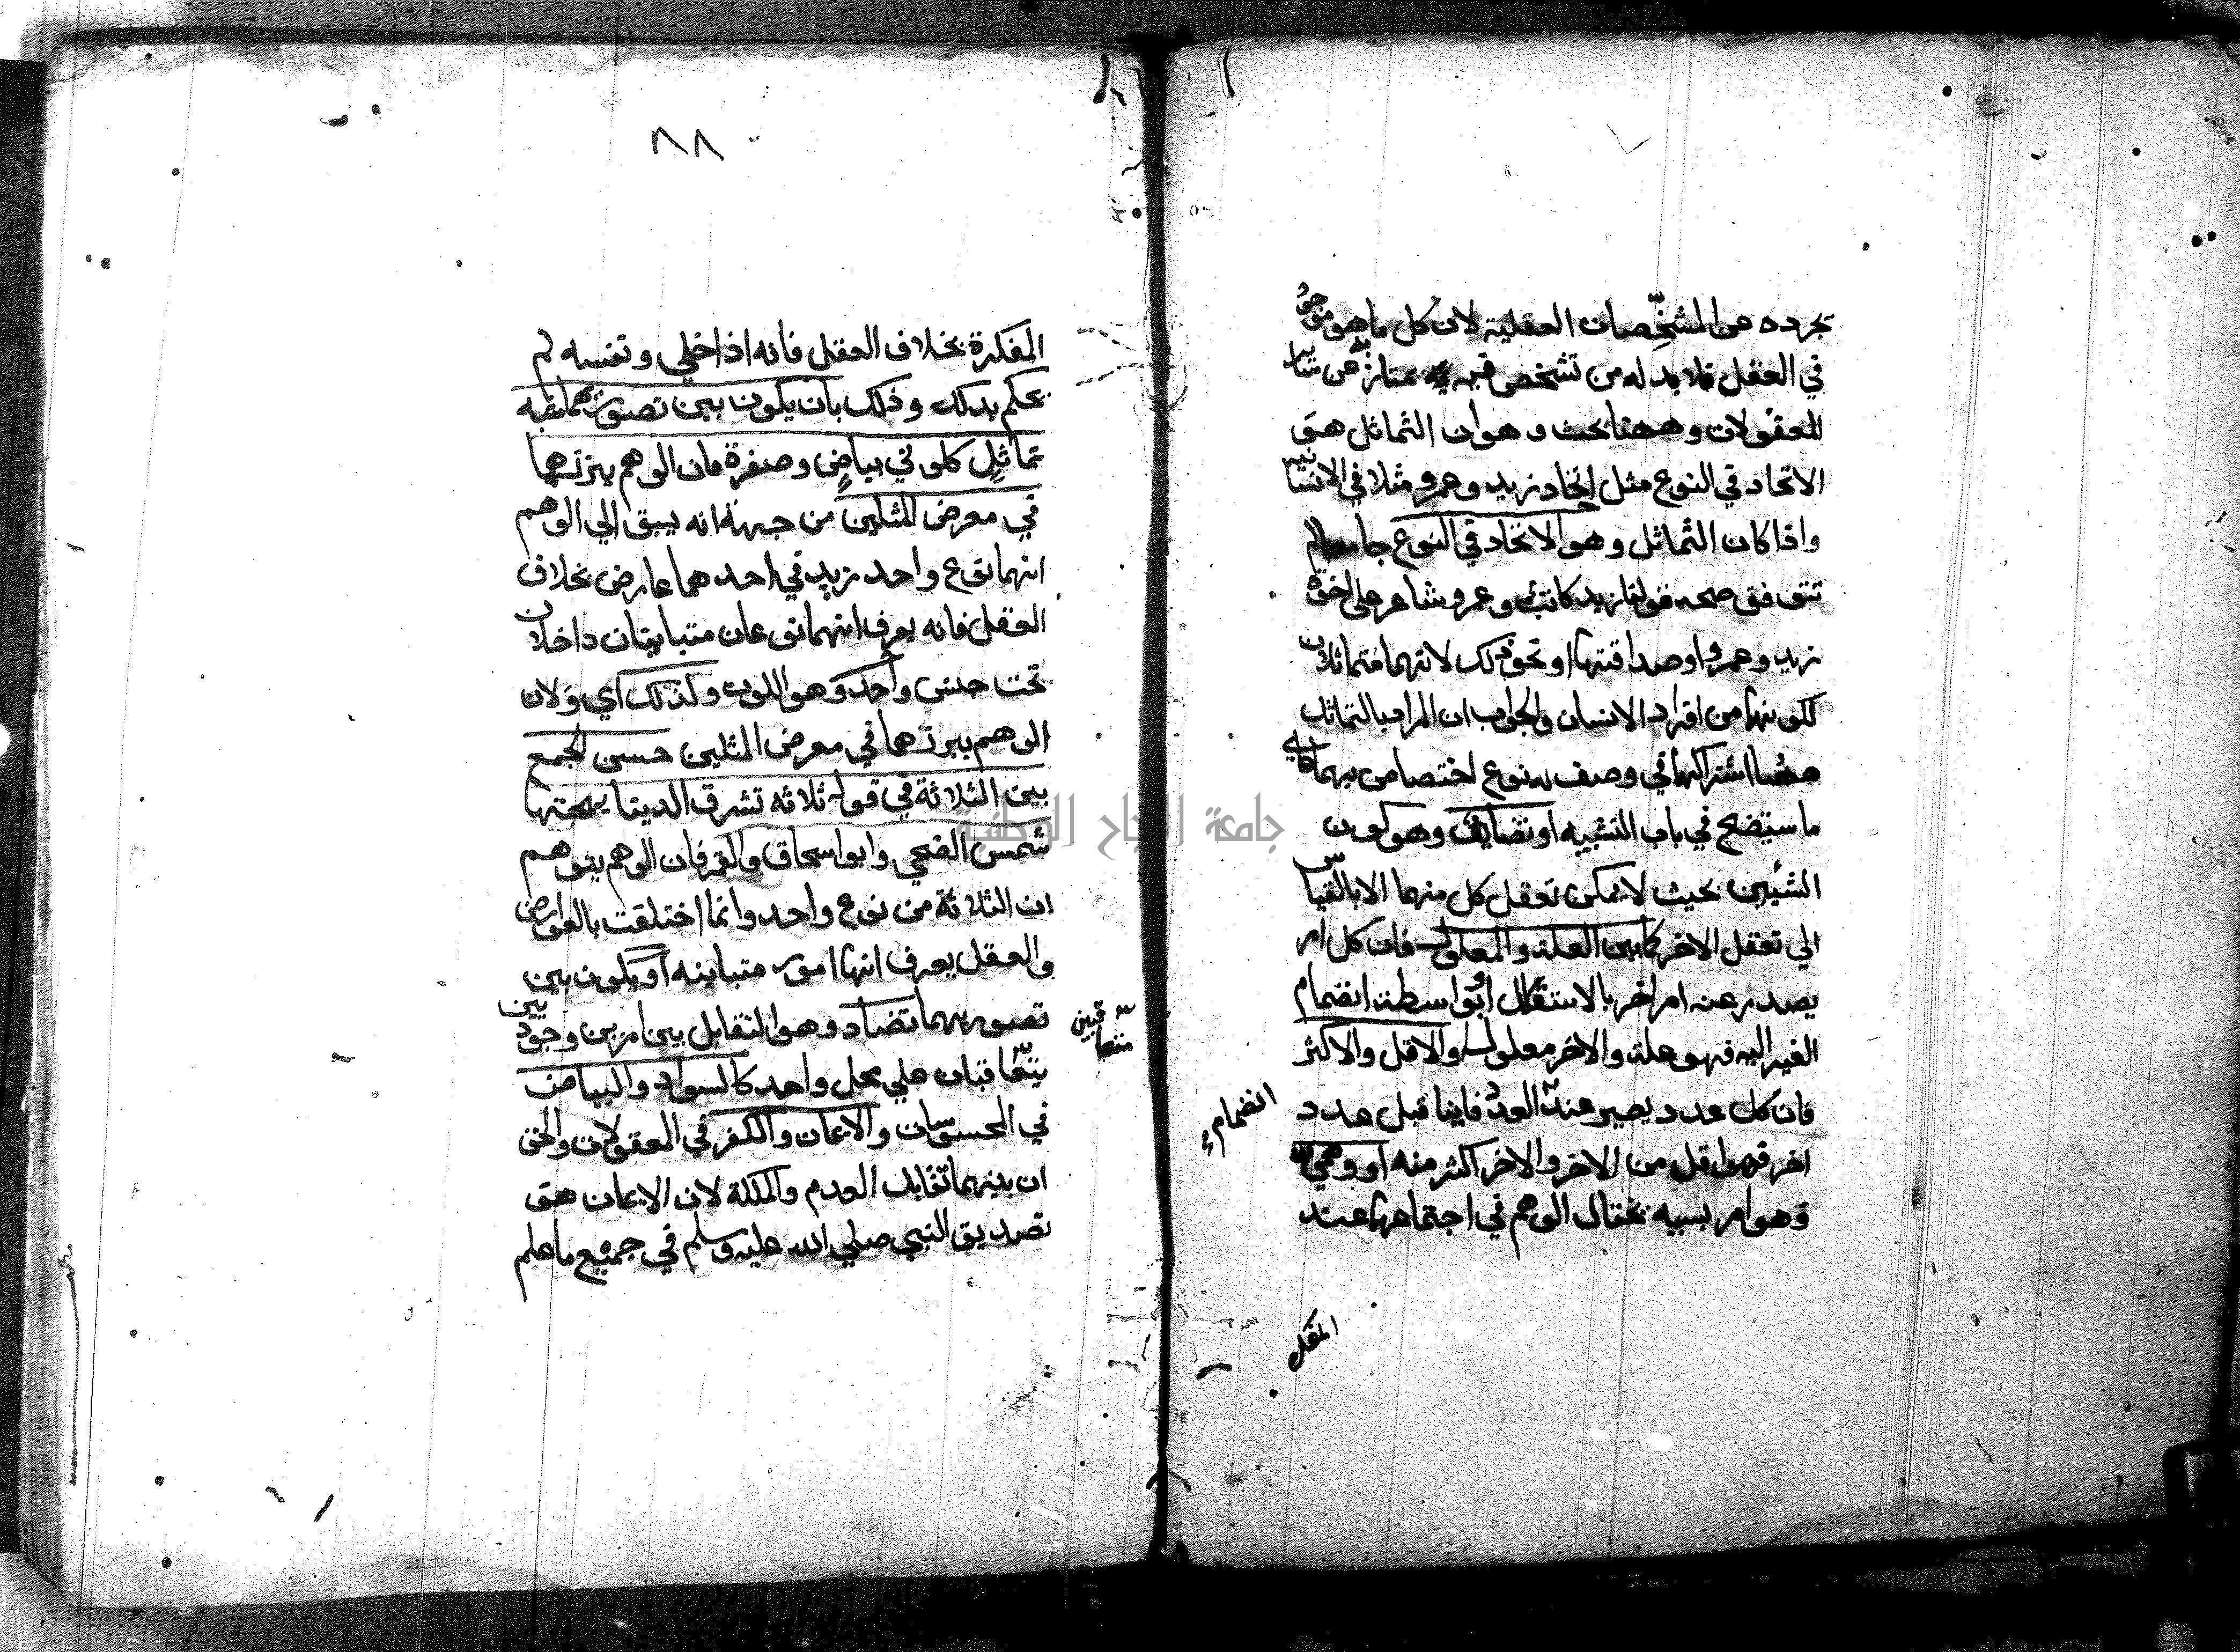 تجرده عن المشخصات العقلية لان كل ما هو موجود
في العقل فلا بد له من تشخص فيه به يمتاز عن سائر
المعقولات وههنا بحث وهو ان التماثل هو
الاتحاد في النوع مثل اتحاد زيد وعمرو مثلا في الانسانية
واذا كان التماثل وهو الاتحاد في النوع جامعا لم
تتوقف صحة قولنا زيد كاتب وعمرو شاعر على اخوة
زيد وعمرو او صداقتهما او نحو ذلك لانهما متماثلان
لكونهما من افراد الانسان والجواب ان المراد بالتماثل
ههنا اشتراكهما في وصف له نوع اختصاص بهما على
ما سيتضح في باب التشبيه او تضايف وهو كون
الشيئين بحيث لا يمكن تعقل كل منهما الا بالقياس
الي تعقل الاخر كما بين العلة والمعلول فان كل امر
يصدر عنه امر اخر بالاستقلال او بواسطة انضمام
الغير اليه فهو علة والاخر معلول والاقل والاكثر
فان كل عدد يصير عند العد فانيا قبل عدد
انضمام
اخر فهو اقل من الاخر والاخر اكثر منه او وهمي
وهو امر بسببه يحتال الوهم في اجتماعهما عند
المفكرة
جامعة النجاح الوطنية
٨٨
المفكرة بخلاف العقل فانه اذا خلي ونفسه لم
يحكم بذلك وذلك بان يكون بين تصوريهما شبه
تماثل كلوني بياض وصفرة فان الوهم يبرزهما
في معرض المثلين من جهة انه يسبق الي الوهم
انهما نوع واحد زيد في احدهما عارض بخلاف
العقل فانه يعرف انهما نوعان متباينان داخلان
تحت جنس واحد وهو اللون ولذلك اي ولان
الوهم يبرزهما في معرض المثلين حسن الجمع
بين الثلاثة في قوله ثلاثة تشرق الدنيا ببهجتها
شمس الضحي وابو اسحاق والقمر فان الوهم يتوهم
ان الثلاثة من نوع واحد وانما اختلفت بالعوارض
والعقل يعرف انها امور متباينه او يكون بين
تصوريهما تضاد وهو التقابل بين امرين وجوديين
يتعاقبان علي محل واحد كالسواد والبياض
في المحسوسات والايمان والكفر في المعقولات والحق
ان بينهما تقابل العدم والملكة لان الايمان هو
تصديق النبي صلي الله عليه وسلم في جميع ما علم